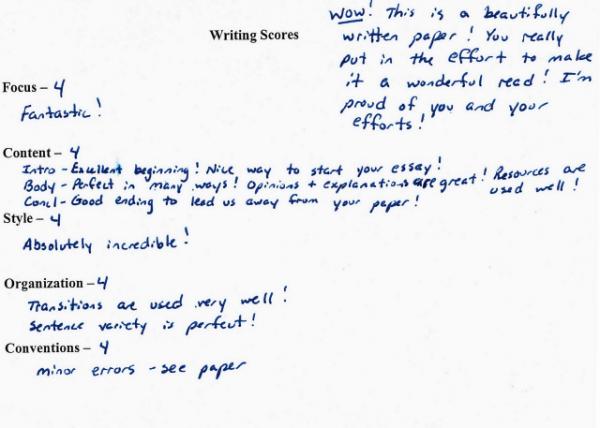 Writing Scores
WOW! This is a beautifully
written paper! You really
put in the effort to make
it a wonderful read! I'm
proud of you and your
efforts!
Focus – 4
Fantastic!
Content – 4
Intro - Excellent beginning! Nice way to start your essay!
Body - Perfect in many ways! Opinions + explanations are great! Resources are
used well!
Concl - Good ending to lead us away from your paper!
Style – 4
Absolutely incredible!
Organization – 4
Transitions are used very well!
Sentence variety is perfect!
Conventions – 4
minor errors - see paper